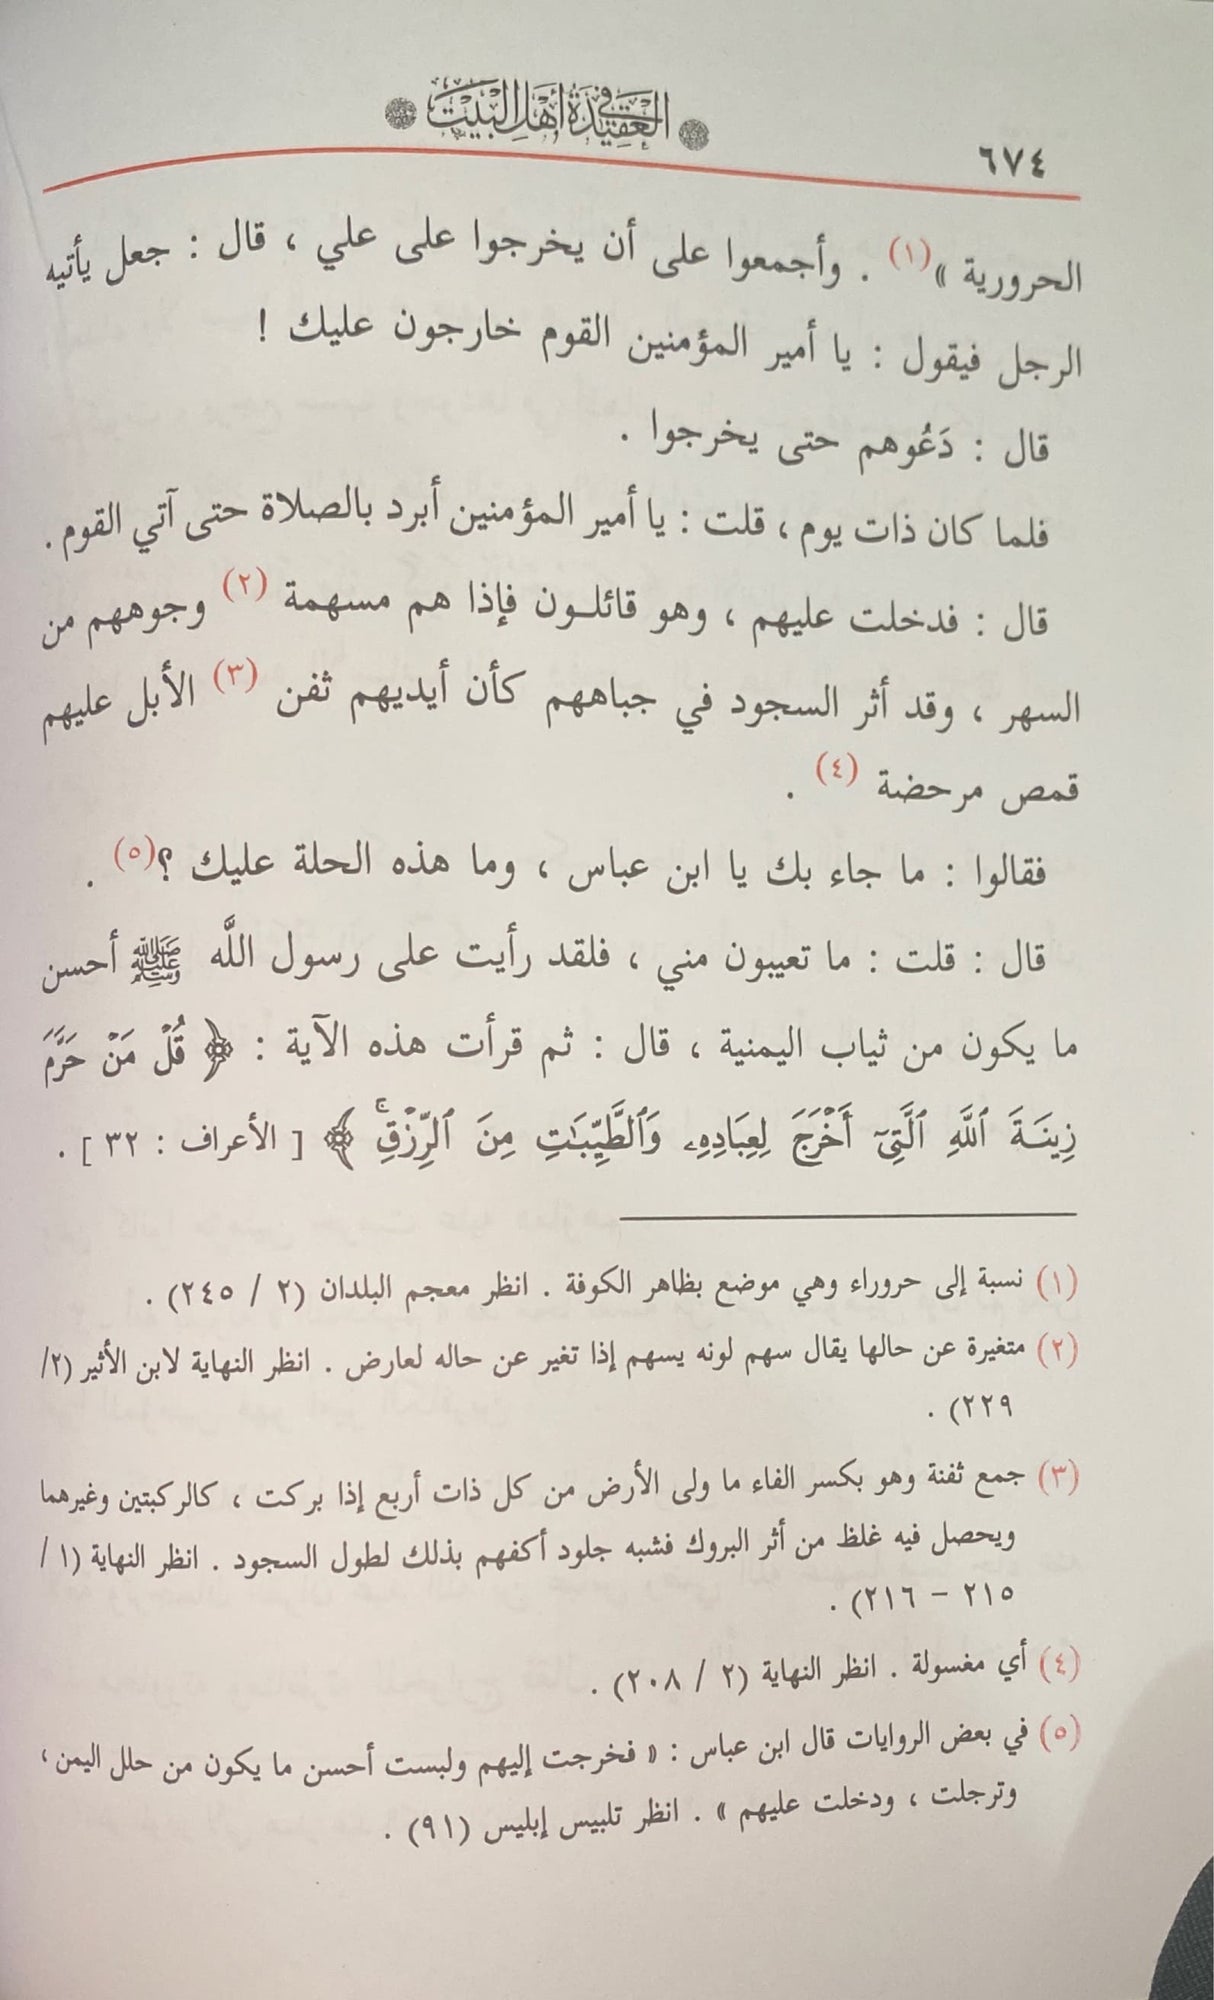 العقيدة في أهل البيت
٦٧٤
الحرورية »(١) . وأجمعوا على أن يخرجوا على علي ، قال : جعل يأتيه
الرجل فيقول : يا أمير المؤمنين القوم خارجون عليك !
قال : دَعُوهم حتى يخرجوا .
فلما كان ذات يوم ، قلت : يا أمير المؤمنين أبرد بالصلاة حتى آتي القوم .
قال : فدخلت عليهم ، وهو قائلون فإذا هم مسهمة (٢) وجوههم من
السهر ، وقد أثر السجود في جباههم كأن أيديهم ثفن (٣) الأبل عليهم
قمص مرحضة (٤) .
فقالوا : ما جاء بك يا ابن عباس ، وما هذه الحلة عليك ؟(٥) .
قال : قلت : ما تعيبون مني ، فلقد رأيت على رسول اللَّه ﷺ أحسن
ما يكون من ثياب اليمنية ، قال : ثم قرأت هذه الآية : ﴿ قُلْ مَنْ حَرَّمَ
زِينَةَ ٱللَّهِ ٱلَّتِىٓ أَخْرَجَ لِعِبَادِهِۦ وَٱلطَّيِّبَٰتِ مِنَ ٱلرِّزْقِۚ ﴾ [ الأعراف : ٣٢ ] .
(١) نسبة إلى حروراء وهي موضع بظاهر الكوفة . انظر معجم البلدان (٢ / ٢٤٥) .
(٢) متغيرة عن حالها يقال سهم لونه يسهم إذا تغير عن حاله لعارض . انظر النهاية لابن الأثير (٢/
٢٢٩) .
(٣) جمع ثفنة وهو بكسر الفاء ما ولى الأرض من كل ذات أربع إذا بركت ، كالركبتين وغيرهما
ويحصل فيه غلظ من أثر البروك فشبه جلود أكفهم بذلك لطول السجود . انظر النهاية (١ /
٢١٥ – ٢١٦) .
(٤) أي مغسولة . انظر النهاية (٢ / ٢٠٨) .
(٥) في بعض الروايات قال ابن عباس : « فخرجت إليهم ولبست أحسن ما يكون من حلل اليمن ،
وترجلت ، ودخلت عليهم » . انظر تلبيس إبليس (٩١) .